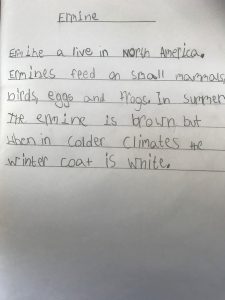 Ermine
Ermine a live in North America.
Ermines feed on small mammals,
birds, eggs and frogs. In summer
the ermine is brown but
when in colder climates the
winter coat is white.